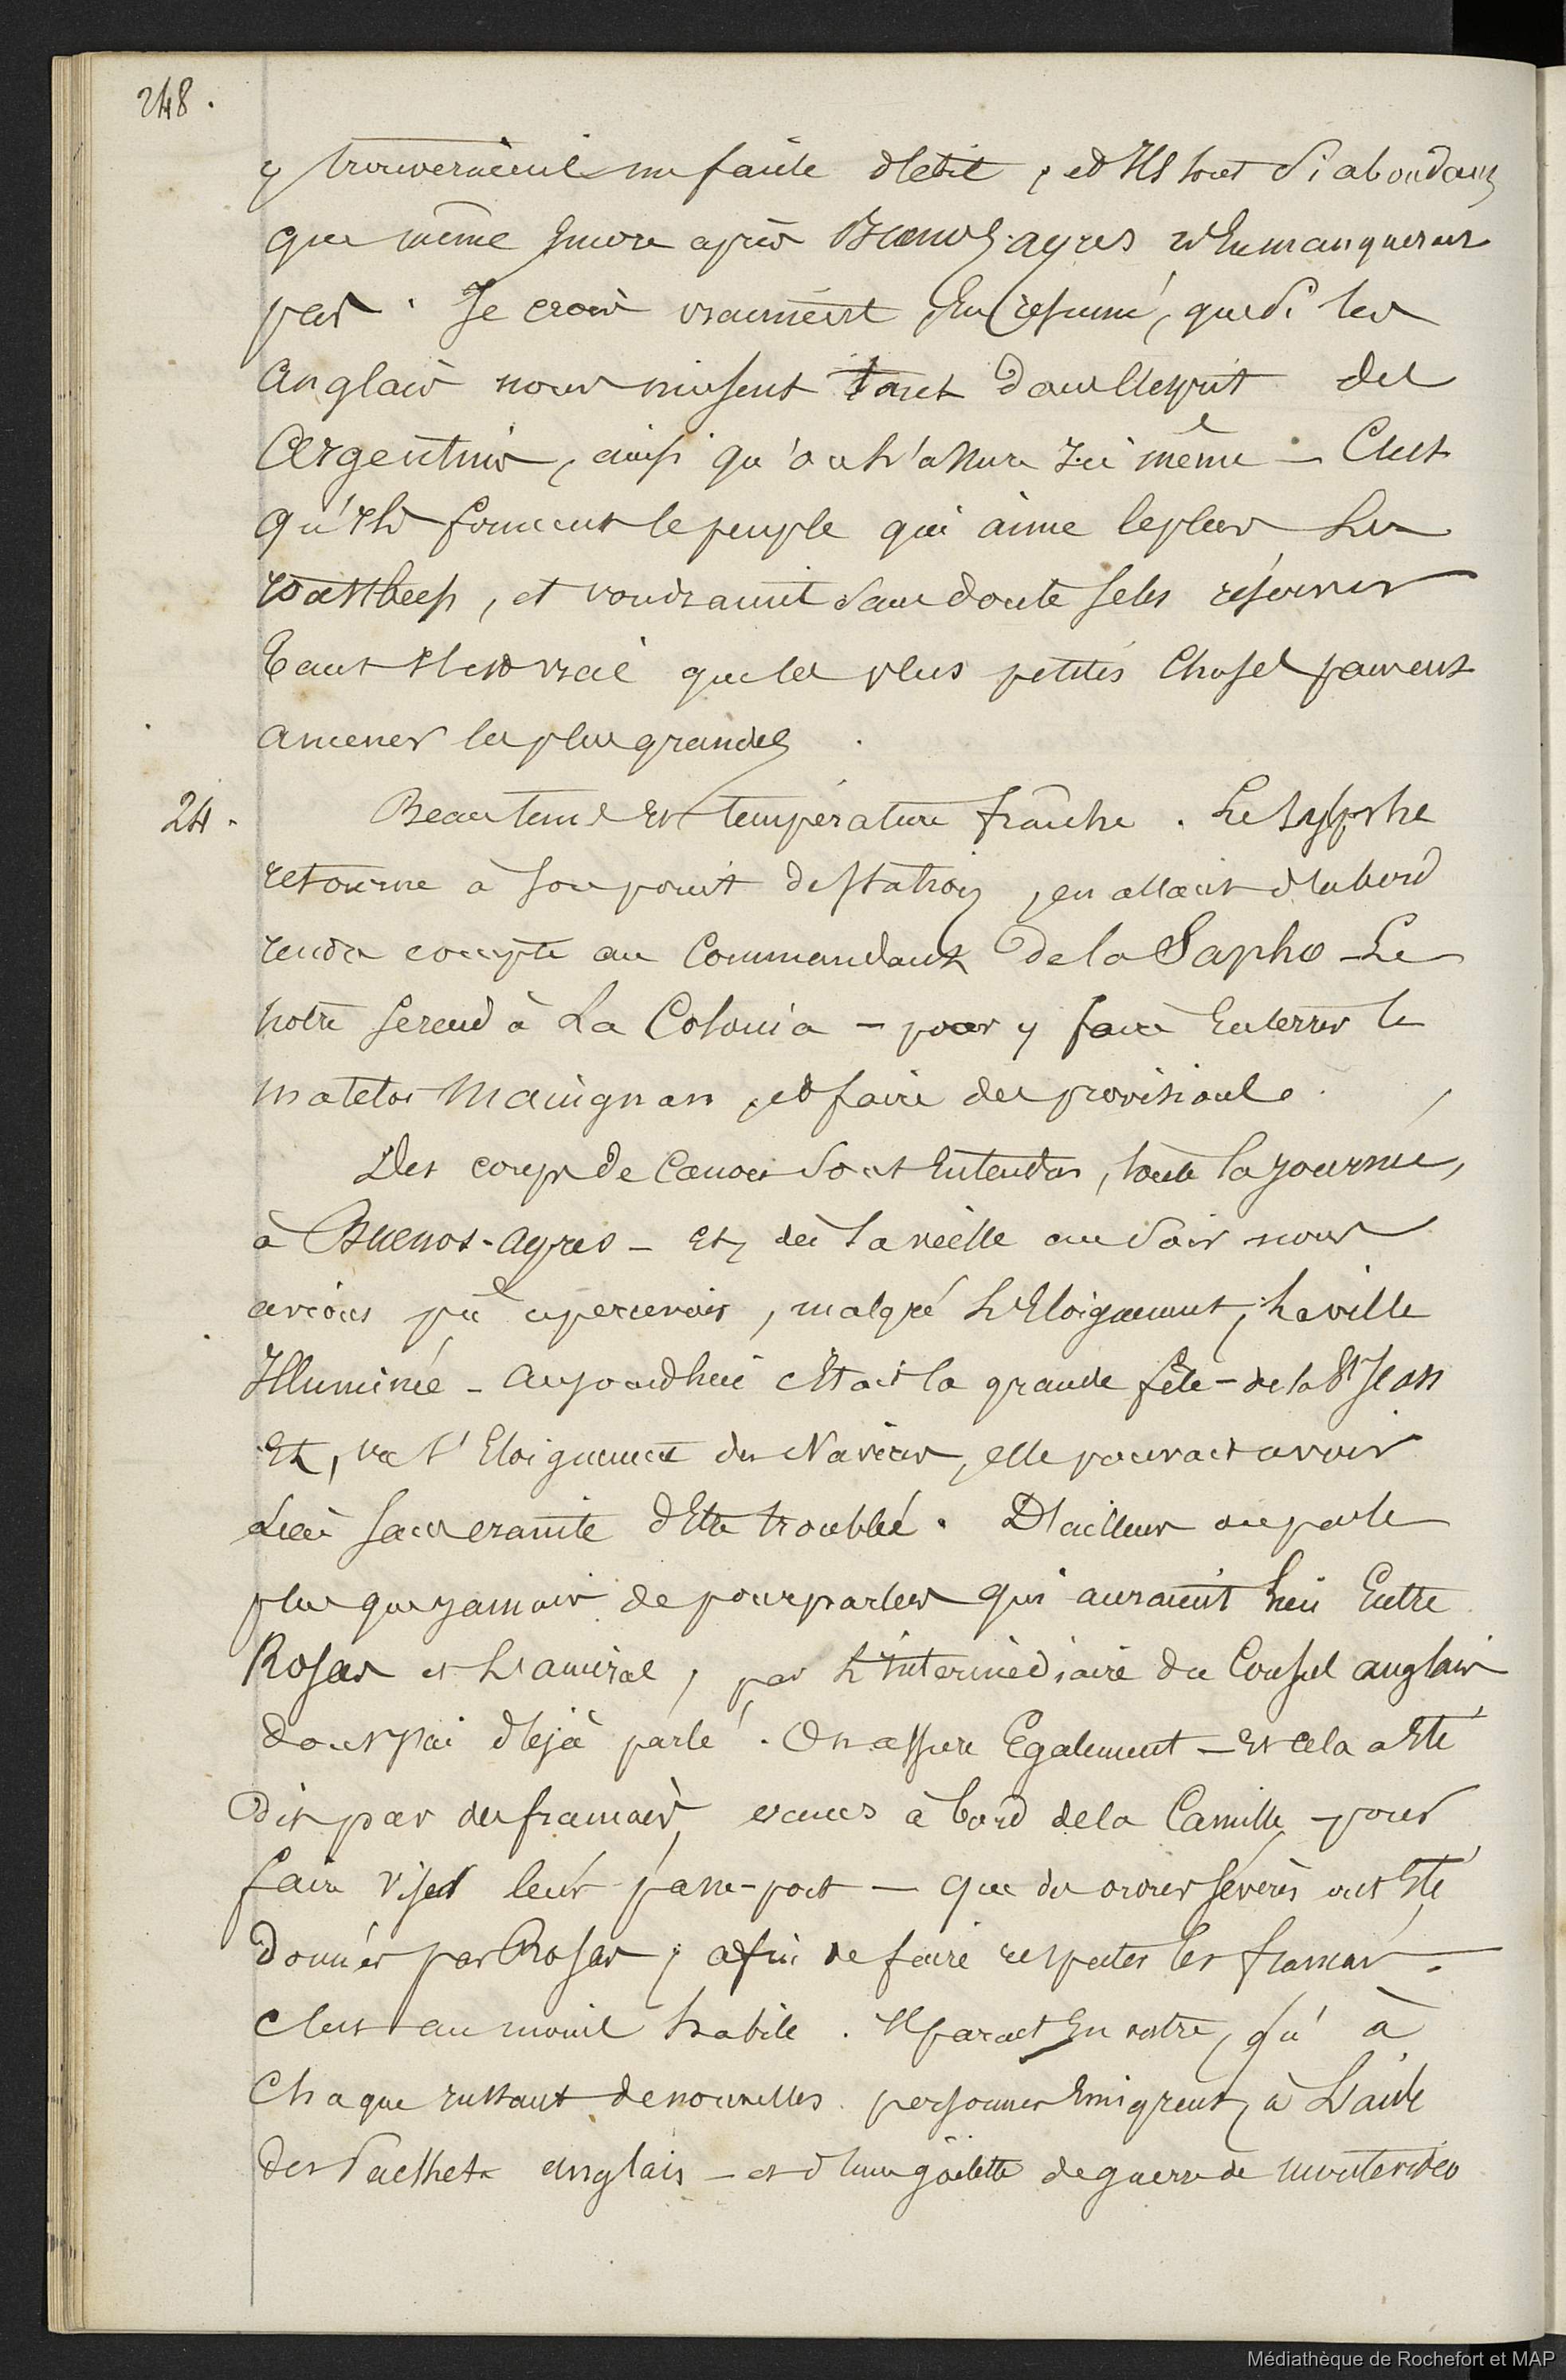 248.
y trouveraient un facile débit, et Ils sont si abondans
que même Encore après Buenos-ayres n'En manquerait
pas. Je crois vraiment, En résumé, que si les
anglais nous nuisent tant dans l'esprit des
Argentins, ainsi qu'on l'assure Ici même — C'est
qu'Ils forment le peuple qui aime le plus Le
rosstbeef, et voudraient sans doute se les réserver
tant Il est vrai que les plus petites choses peuvent
amener les plus grandes.
24. Beau tems Et température fraîche. Le Sylphe
retourne à son point de station, en allant d'abord
rendre compte au Commandant de la Sapho – Le
notre se rend à La Colonia – pour y faire Enterrer le
matelot Maingnan, et faire des provisions.
Des coups de Canon sont Entendus, toute la journée,
à Buenos-ayres – Et, dès la veille au soir nous
avions pû apercevoir, malgré L'Eloignement, La ville
Illuminée – aujourdhui était la grande fête – de la St Jean
Et, vu l'Eloignement des Navires, elle pouvait avoir
Lieu sans crainte d'Etre troublée. D'ailleurs on parle
plus que jamais de pourparlers qui auraient Lieu Entre
Rosas et L'amiral, par L'intermédiaire du Consul anglais
dont j'ai déjà parlé. On assure Egalement – Et cela a Eté
dit par des français, venues à bord de la Camille – pour
faire viser leur passe-port — que des ordres sévères ont Eté
donnés par Rosas, afin de faire respecter les français.
C'est au moins habile. Il parait En outre, qu'à
Chaque Instant de nouvelles personnes Emigrent, à L'aide
des Packets anglais – et d'une goëlette de guerre de montevideo
Médiathèque de Rochefort et MAP